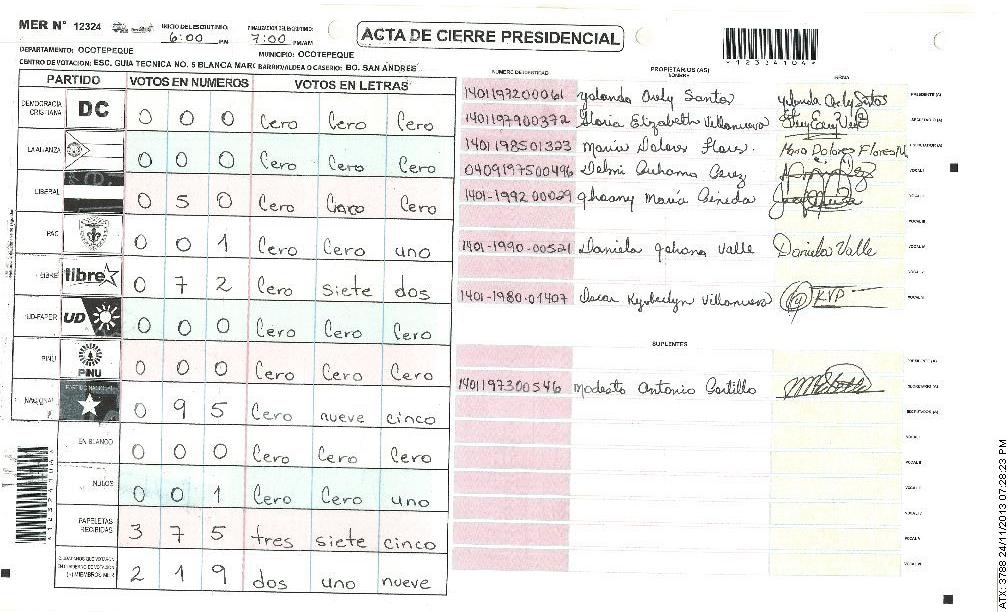 MER N° 12324
INICIO DEL ESCRUTINIO:
6:00 PM
FINALIZACION DEL ESCRUTINIO:
7:00 PM/AM
ACTA DE CIERRE PRESIDENCIAL
DEPARTAMENTO: OCOTEPEQUE
MUNICIPIO: OCOTEPEQUE
CENTRO DE VOTACION: ESC. GUIA TECNICA NO. 5 BLANCA MAR
BARRIO/ALDEA O CASERIO: BO. SAN ANDRES
PARTIDO VOTOS EN NUMEROS VOTOS EN LETRAS
DEMOCRACIA CRISTIANA DC 0 0 0 Cero Cero Cero
LA ALIANZA 0 0 0 Cero Cero Cero
LIBERAL 0 5 0 Cero Cero
PAC 0 0 1 Cero Cero uno
LIBRE libre 0 7 2 Cero siete dos
UD-FAPER UD 0 0 0 Cero Cero Cero
PINU PINU 0 0 0 Cero Cero Cero
NACIONAL PARTIDO NACIONAL 0 9 5 Cero nueve cinco
EN BLANCO 0 0 0 Cero Cero Cero
NULOS 0 0 1 Cero Cero uno
PAPELETAS RECIBIDAS 3 7 5 tres siete cinco
2 1 9 dos uno nueve
NUMERO DE IDENTIDAD PROPIETARIOS (AS) NOMBRE FIRMA
1401197200061 Yolanda Arely Santos Yolanda Arely Santos PRESIDENTE (A)
1401197900372 Gloria Elizabeth Villanueva SECRETARIO (A)
1401198501323 Maria Dolores Flores. Maria Dolores Flores M. ESCRUTADOR (A)
0409197500496 Delmi VOCAL I
1401-199200029 Maria Pineda VOCAL II
VOCAL III
1401-1990-00521 Daniela Valle Daniela Valle VOCAL IV
1401-1980-01407 Oscar Villanueva KVP
SUPLENTES
PRESIDENTE (A)
1401197300546 Modesto Antonio Portillo SECRETARIO (A)
ESCRUTADOR (A)
VOCAL I
VOCAL II
VOCAL III
VOCAL IV
VOCAL V
VOCAL VI
ATX: 3788 24/11/2013 07:28:23 PM